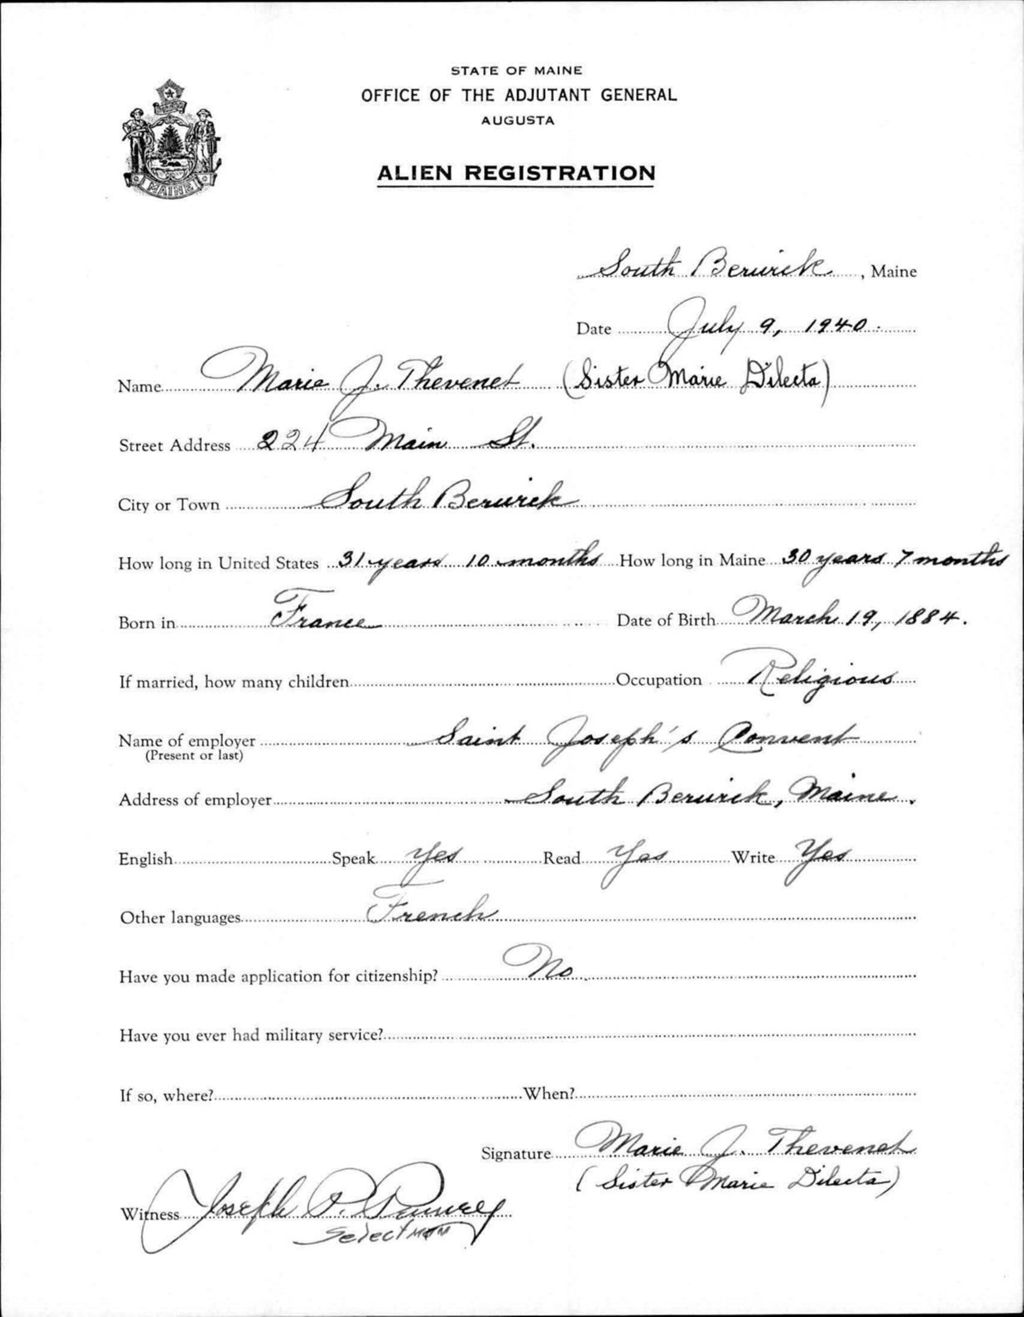 STATE OF MAINE
OFFICE OF THE ADJUTANT GENERAL
AUGUSTA
ALIEN REGISTRATION
MAINE
South Berwick, Maine
Date July 9, 1940.
Name Marie J. Thevenet (Sister Marie Dilecta)
Street Address 224 Main St.
City or Town South Berwick
How long in United States 31 years 10 months How long in Maine 30 years 7 months
Born in France Date of Birth March 19, 1884.
If married, how many children Occupation Religious
Name of employer Saint Joseph's Convent
(Present or last)
Address of employer South Berwick, Maine.
English Speak Yes Read Yes Write Yes
Other languages French
Have you made application for citizenship? No
Have you ever had military service?
If so, where? When?
Signature Marie J. Thevenet
(Sister Marie Dilecta)
Witness Joseph P.
Selectman